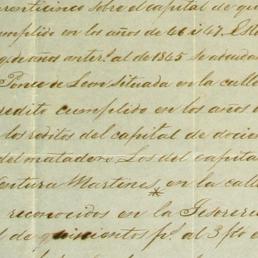 renticinco sobre el capital de qui
umplido en los años de 46 i 47. El
de año anter.l al de 1845 se aduda
Ponce de Leon situada en la calle
redito cumplido en los años d
los reditos del capital de docien
del matadero. Los del capita
Ventura Martines, en la call
reconocidos en la Tesoreri
l de quinientos ps. al 3 pto